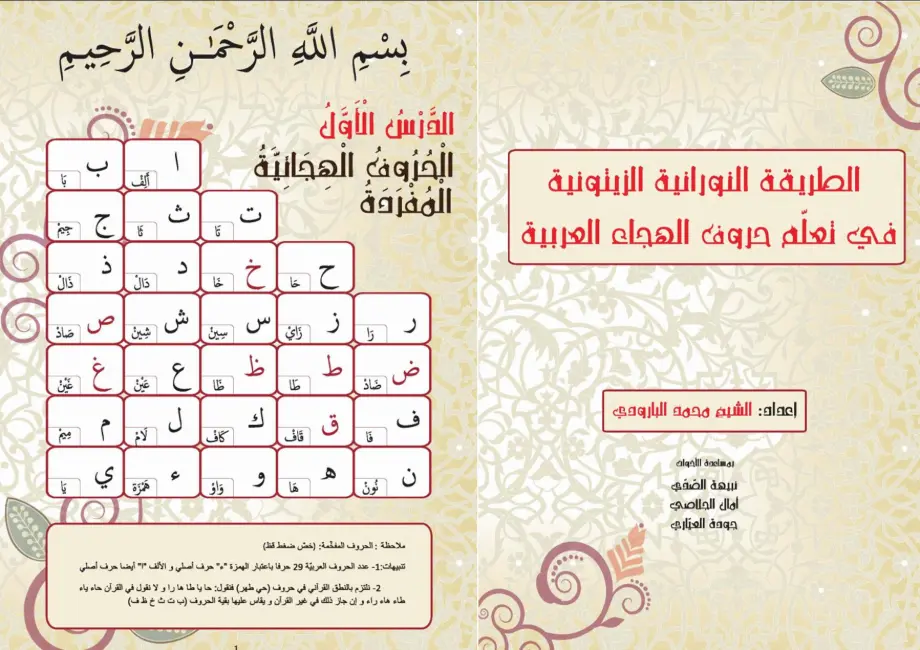 الطريقة النورانية الزيتونية
في تعلّم حروف الهجاء العربية
إعداد: الشيخ محمد البارودي
بمساعدة الأخوات
نبيهة الصّفي
أمال الجلاصي
جودة العيّاري
بِسْمِ اللَّهِ الرَّحْمَـٰنِ الرَّحِيمِ
الدَّرْسُ الْأَوَّلُ
الْحُرُوفُ الْهِجَائِيَّةُ
الْمُفْرَدَةُ
ا أَلِفْ ب بَا
ت تَا ث ثَا ج جِيمْ
ح حَا خ خَا د دَالْ ذ ذَالْ
ر رَا ز زَايْ س سِينْ ش شِينْ ص صَادْ
ض ضَادْ ط طَا ظ ظَا ع عَيْنْ غ غَيْنْ
ف فَا ق قَافْ ك كَافْ ل لَامْ م مِيمْ
ن نُونْ ه هَا و وَاوْ ء هَمْزَة ي يَا
ملاحظة : الحروف المفخّمة: (خصّ ضغط قظ)
تنبيهات:1- عدد الحروف العربيّة 29 حرفا باعتبار الهمزة "ء" حرف أصلي و الألف "ا" أيضا حرف أصلي
2- نلتزم بالنطق القرآني في حروف (حي طهر) فنقول: حا يا طا ها را و لا نقول في القرآن حاء ياء
طاء هاء راء و إن جاز ذلك في غير القرآن و يقاس عليها بقية الحروف (ب ت ث خ ظ ف)
1